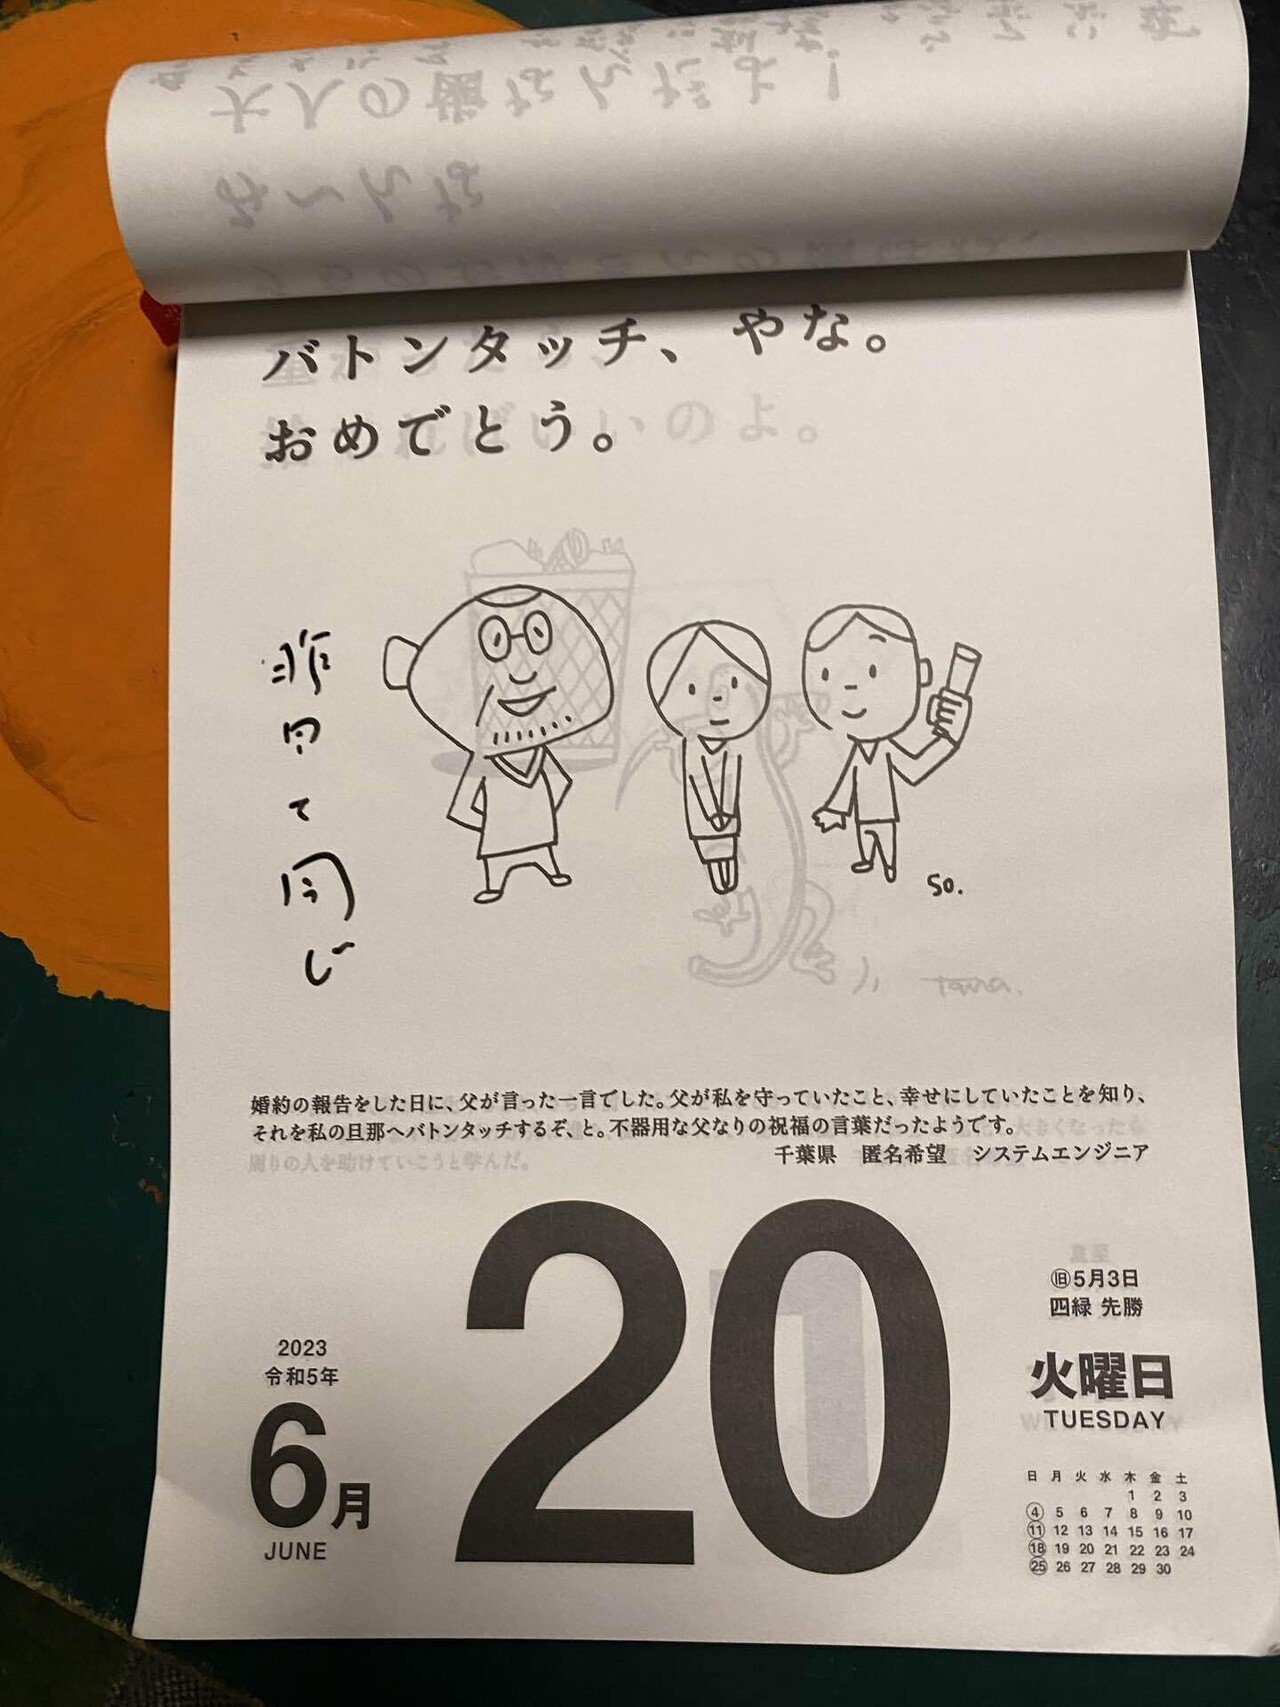 大人の歯なんだよ！
み〜んな
バトンタッチ、やな。
おめでとう。
so.
婚約の報告をした日に、父が言った一言でした。父が私を守っていたこと、幸せにしていたことを知り、
それを私の旦那へバトンタッチするぞ、と。不器用な父なりの祝福の言葉だったようです。
千葉県　匿名希望　システムエンジニア
2023
令和5年
6月
JUNE
20
㊐5月3日
四緑 先勝
火曜日
TUESDAY
日 月 火 水 木 金 土
1 2 3
4 5 6 7 8 9 10
11 12 13 14 15 16 17
18 19 20 21 22 23 24
25 26 27 28 29 30